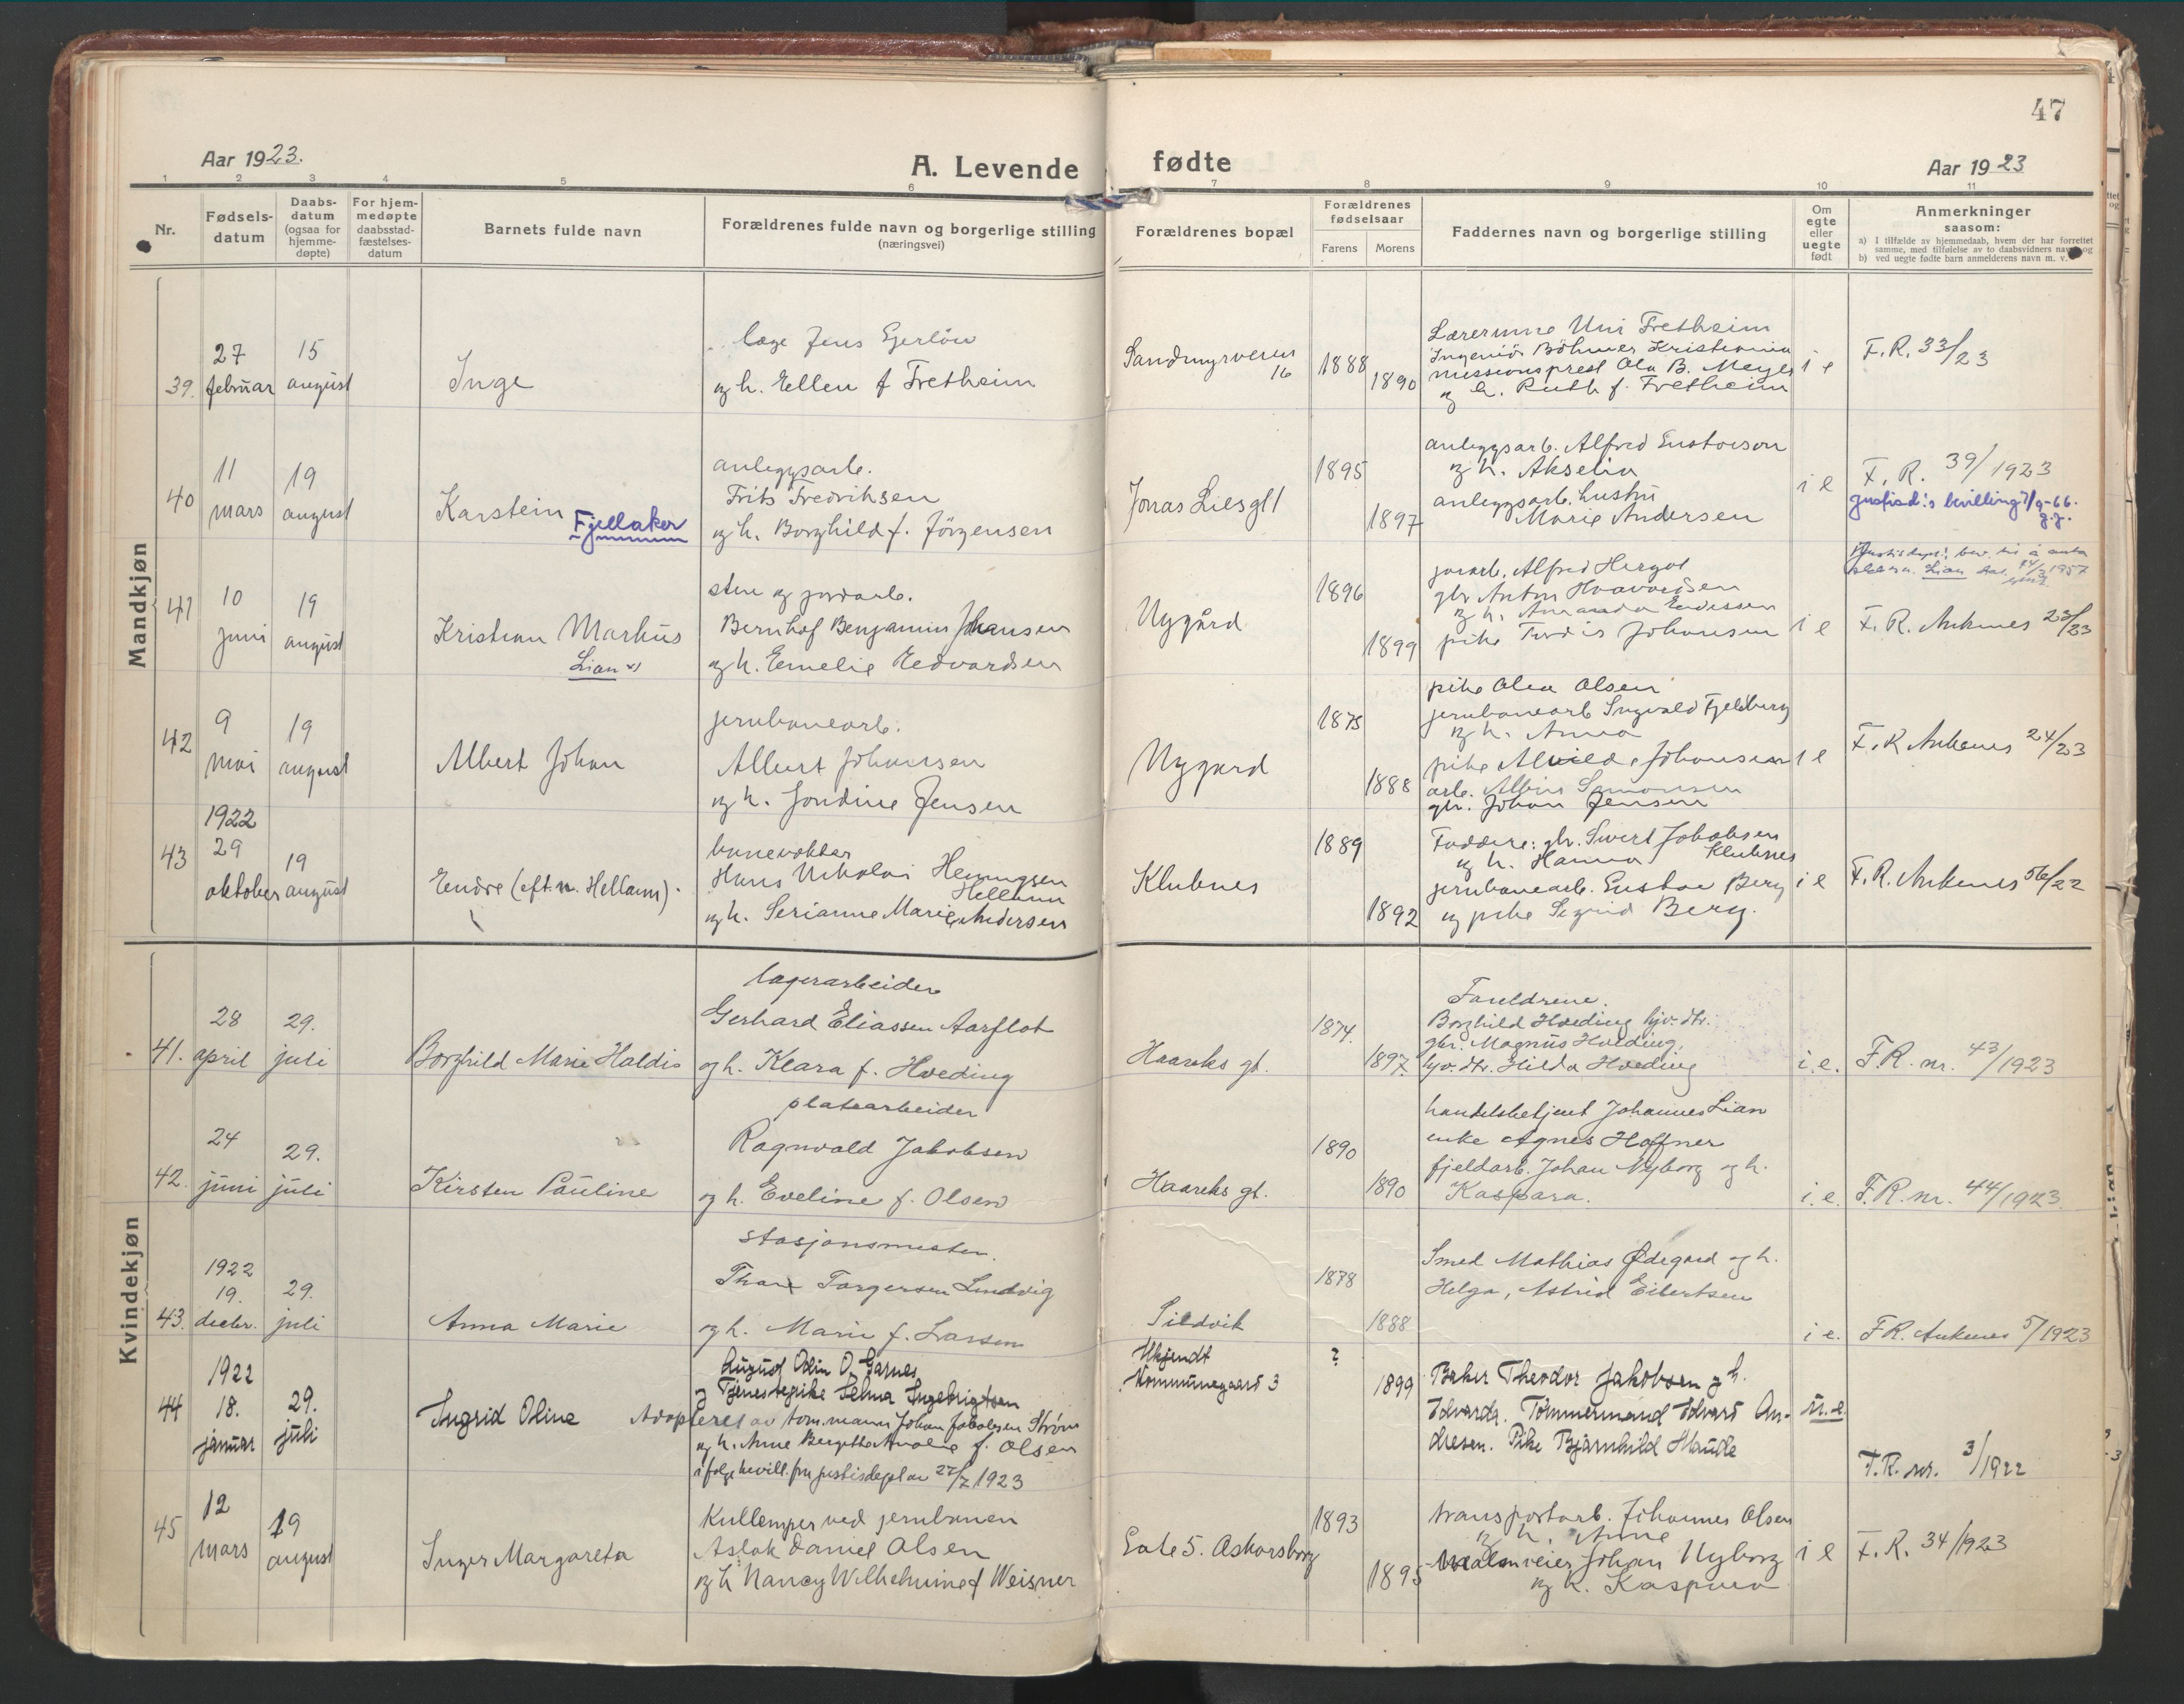 47
Aar 1923.
A. Levende fødte
Aar 1923
1 2 3 4 5 6 7 8 9 10 11
Nr.
Fødsels-
datum
Daabs-
datum
(ogsaa for
hjemme-
døpte)
For hjem-
medøpte
daabsstad-
fæstelses-
datum
Barnets fulde navn
Forældrenes fulde navn og borgerlige stilling
(næringsvei)
Forældrenes bopæl
Forældrenes
fødselsaar
Farens Morens
Faddernes navn og borgerlige stilling
Om
egte
eller
uegte
født
Anmerkninger
saasom:
a) I tilfælde av hjemmedaab, hvem der har forrettet
samme, med tilføielse av to daabsvidners navn og
b) ved uegte fødte barn anmelderens navn m. v.
Mandkjøn
39.
27
februar
15
august
Inge
læge Jens Gjerløw
og h. Ellen f Fretheim
Sandmyrveien
16
1888
1890
Lærerinne Uni Fretheim
Ingeniør Böhmer Kristiania
missionsprest Ola B. Meyer
og h. Ruth f. Fretheim
i e
F.R. 33/23
40
11
mars
19
august
Karstein Fjellaker
anleggsarb.
Frits Fredriksen
og h. Borghild f. Jörgensen
Jonas Liesgt 1
1895
1897
anleggsarb. Alfred Gustavson
og h. Akselia
anleggsarb. hustru
Marie Andersen
i e
F. R. 39/1923
bevilling 7/9-66.
g.g.
41
10
juni
19
august
Kristian Markus
Lian x)
sten og jordarb.
Bernhof Benjamin Johansen
og h. Emelie Edvardsen
Nygård
1896
1899
jordarb. Alfred Hergot
gbr Anton Haavardsen
og h. Amanda
pike Tordis Johansen
i e
Lian 1957
F. R. Ankenes 23/23
42
9
mai
19
august
Albert Johan
jernbanearb.
Albert Johansen
og h. Jondine Jensen
Nygard
1875
1888
pike Olea Olsen
jernbanearb Ingvald Fjeldberg
og h. Anna
pike Alvilde Johansen
arb. Albin Samonsen
gbr. Johan Jensen
i e
F. R Ankenes 24/23
43
1922
29
oktober
19
august
Endre (eft.n. Hellann).
banevokter
Hans Nikolai Henningsen
Hellann
og h. Serianne Marie Andersen
Klubnes
1889
1892
Faddere: gbr. Sivert Jakobsen
og h. Hanna Klubnes
jernbanearb. Gustav Berg
og pike Sigrid Berg.
i e
F.R. Ankenes 56/22
Kvindekjøn
41.
28
april
29.
juli
Borghild Marie Haldis
lagerarbeider
Gerhard Eliassen Aarflot
og h. Klara f. Hveding
Haareks gt.
1874.
1897.
Foreldrene.
Borghild Hveding hjv. dtr.
gbr. Magnus Hveding,
hjv. dtr. Hilda Hveding
i.e.
F.R. nr. 43/1923
42.
24
juni
29.
juli
Kirsten Pauline
platearbeider
Ragnvald Jakobsen
og h. Eveline f. Olsen
Haareks gt.
1890
1890
handelsbetjent Johannes Lian
enke Agnes Hoffner
fjeldarb. Johan Nyborg og h.
Kaspara.
i.e.
F.R. nr. 44/1923.
43.
1922
19.
decbr.
29.
juli
Anna Marie
stasjonsmester.
Thore Torgersen Lundvig
og h. Marie f. Larsen
Sildvik
1878
1888
Smed Mathias Ødegard og h.
Helga, Astrid Eilertsen
i e.
F.R. Ankenes 5/1923
44
1922
18.
januar
29.
juli
Ingrid Oline
August Odin O. Garnes
og Tjenestepike Selma Ingebrigtsen
Adopteret av tøm.mann Johan Jakobsen Strøm
og h. Anne Bergitha Amalie f. Olsen
ifølge bevill. fra justisdept av 27/7 1923
Ukjendt
Kommunegaard 3
?
1899
Baker Theodor Jakobsen og h.
Edvarda. Tømmermand Edvard An-
dresen. Pike Bjarnhild Haude
u. e.
F.R. nr. 3/1922
45
12
mars
19
august
Inger Margareta
Kullemper ved jernbanen
Aslak Daniel Olsen
og h Nancy Wilhelmine f Weisner
Gate 5. Oskarsborg
1893
1895
transportarb. Johannes Olsen
og h. Anne
Malmveier Johan Nyborg
og h. Kaspara
i e
F. R. 34/1923